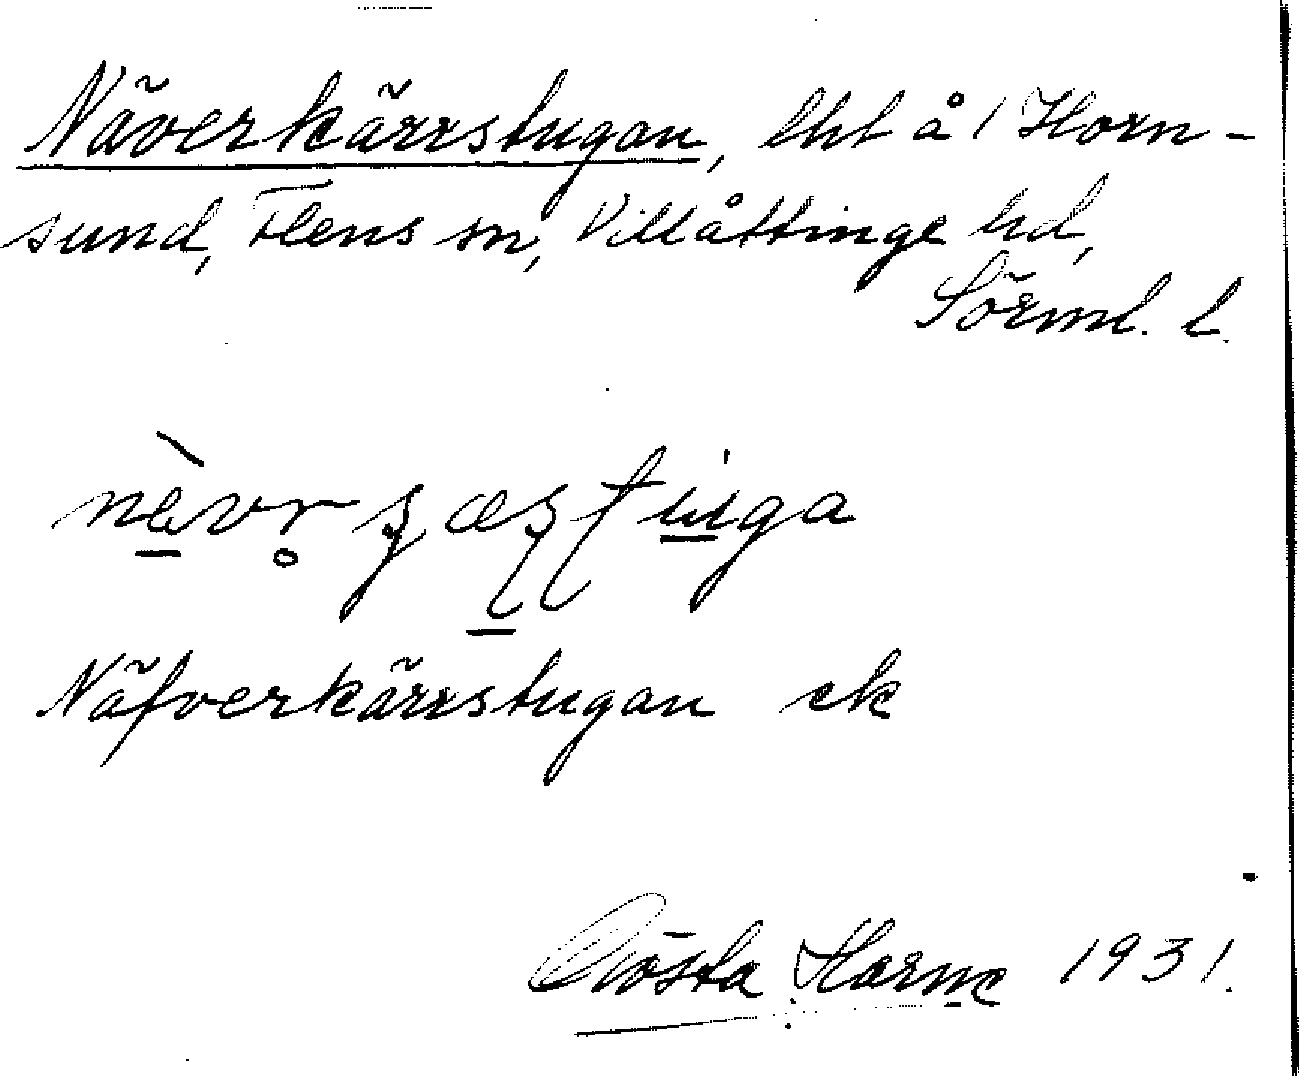 Näverkärrstugan, lht å 1 Horn-
sund, Flens sn, Villåttinge hd,
Sörml. l.
Näfverkärrstugan ek
Gösta Harme 1931.